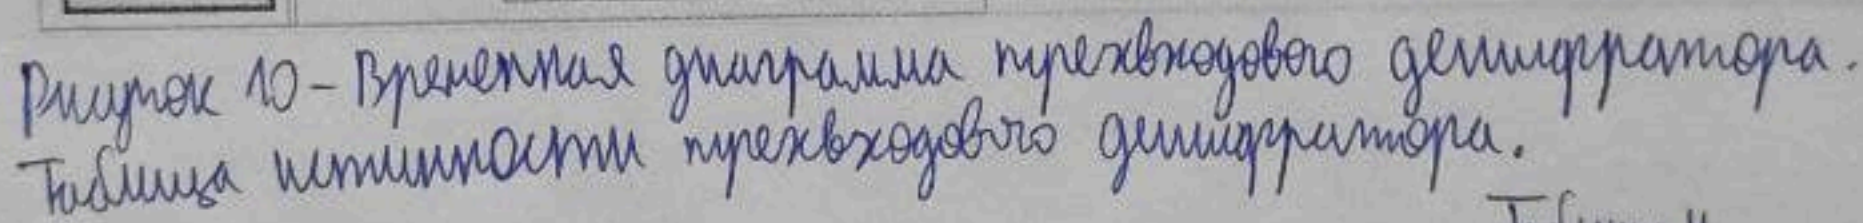 Рисунок 10 - Временная диаграмма трехвходового дешифратора.
Таблица истинности трехвходового дешифратора.